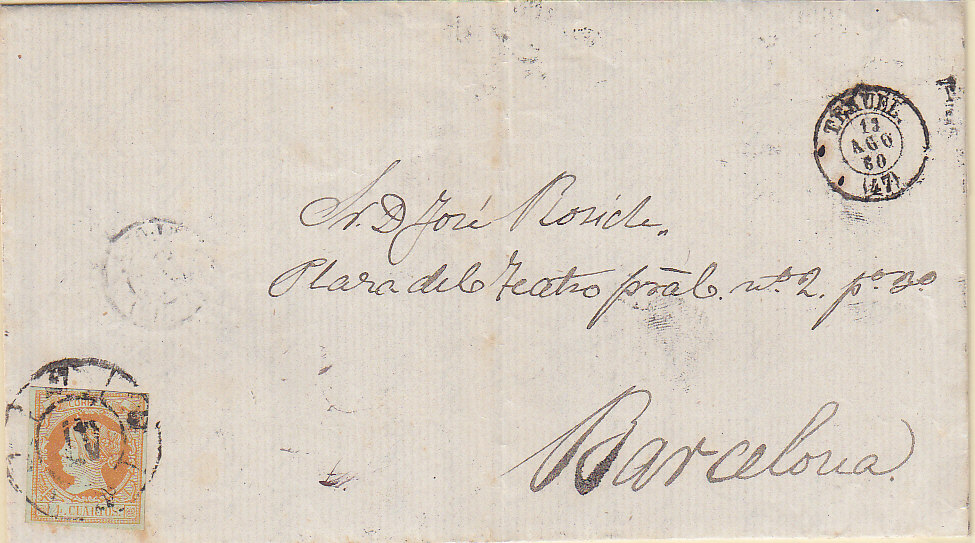 TERUEL.
13
AGO
60
(47)
Sr. D. José
Plaza del Teatro prãl. nº. 2. pº. 3º
Barcelona.
47
4 CUARTOS.